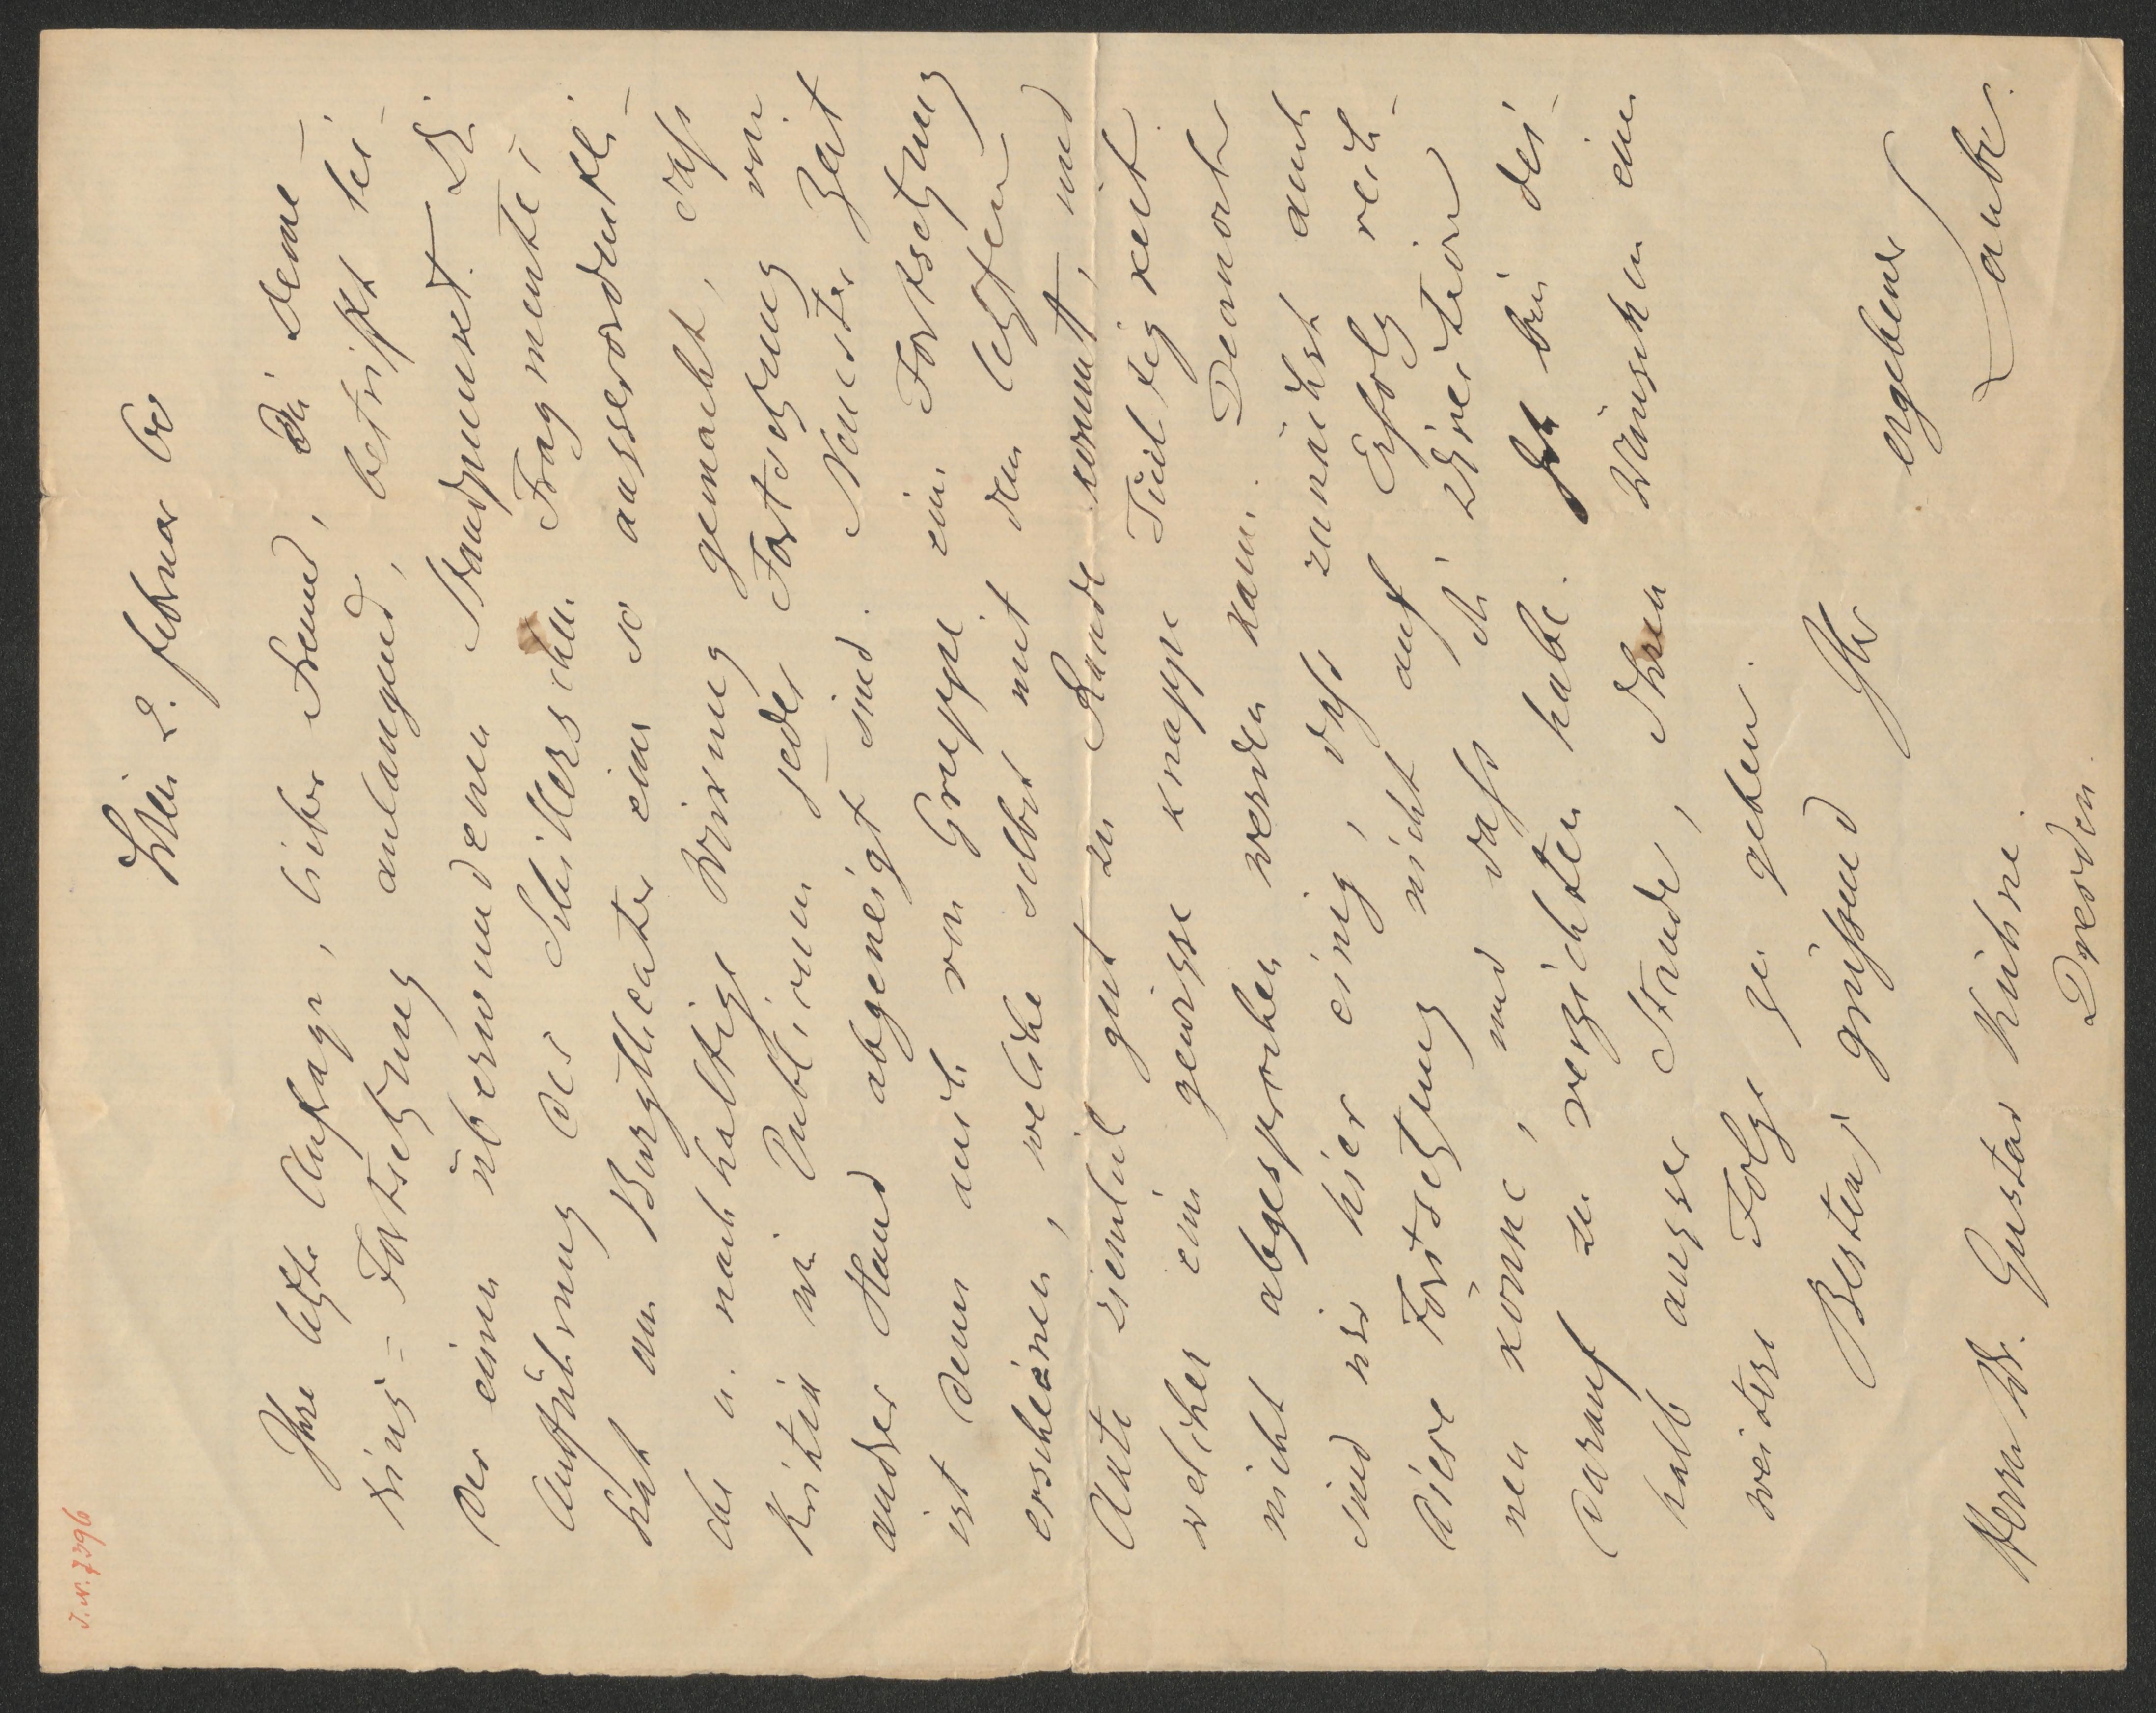 Wien 2. Februar 60
Ihre letzte Anfrage, lieber Freund, die Deme
trius-Fortsetzung anlangend, betrifft lei-
der einen überwundenen Standpunct. Die
Aufführung des Schillerschen Fragmentes
hat am Burgtheater eine so ausserordentli-
che u. nachhaltige Wirkung gemacht, dass
Kritik wie Publicum jeder Fortsetzung von
andrer Hand abgeneigt sind. Neuester Zeit
ist denn auch von Gruppe eine Fortsetzung
erschienen, welche selbst mit den letzten
Acte ziemlich gut zu Rande kommt, und
welcher eine gewisse knappe Tüchtigkeit
nicht abgesprochen werden kann. Dennoch
sind wir hier einig, dass zunächst auch
diese Fortsetzung nicht auf Erfolg rech-
nen könne, und dass die Direction
darauf zu verzichten habe. Ich bin des-
halb ausser Stande, Ihren Wünschen eine
weitere Folge zu geben.
Bestens grüssend Ihr
ergebener
Laube.
Herrn Dr. Gustav Kühne.
Dresden.
J.N. 7396